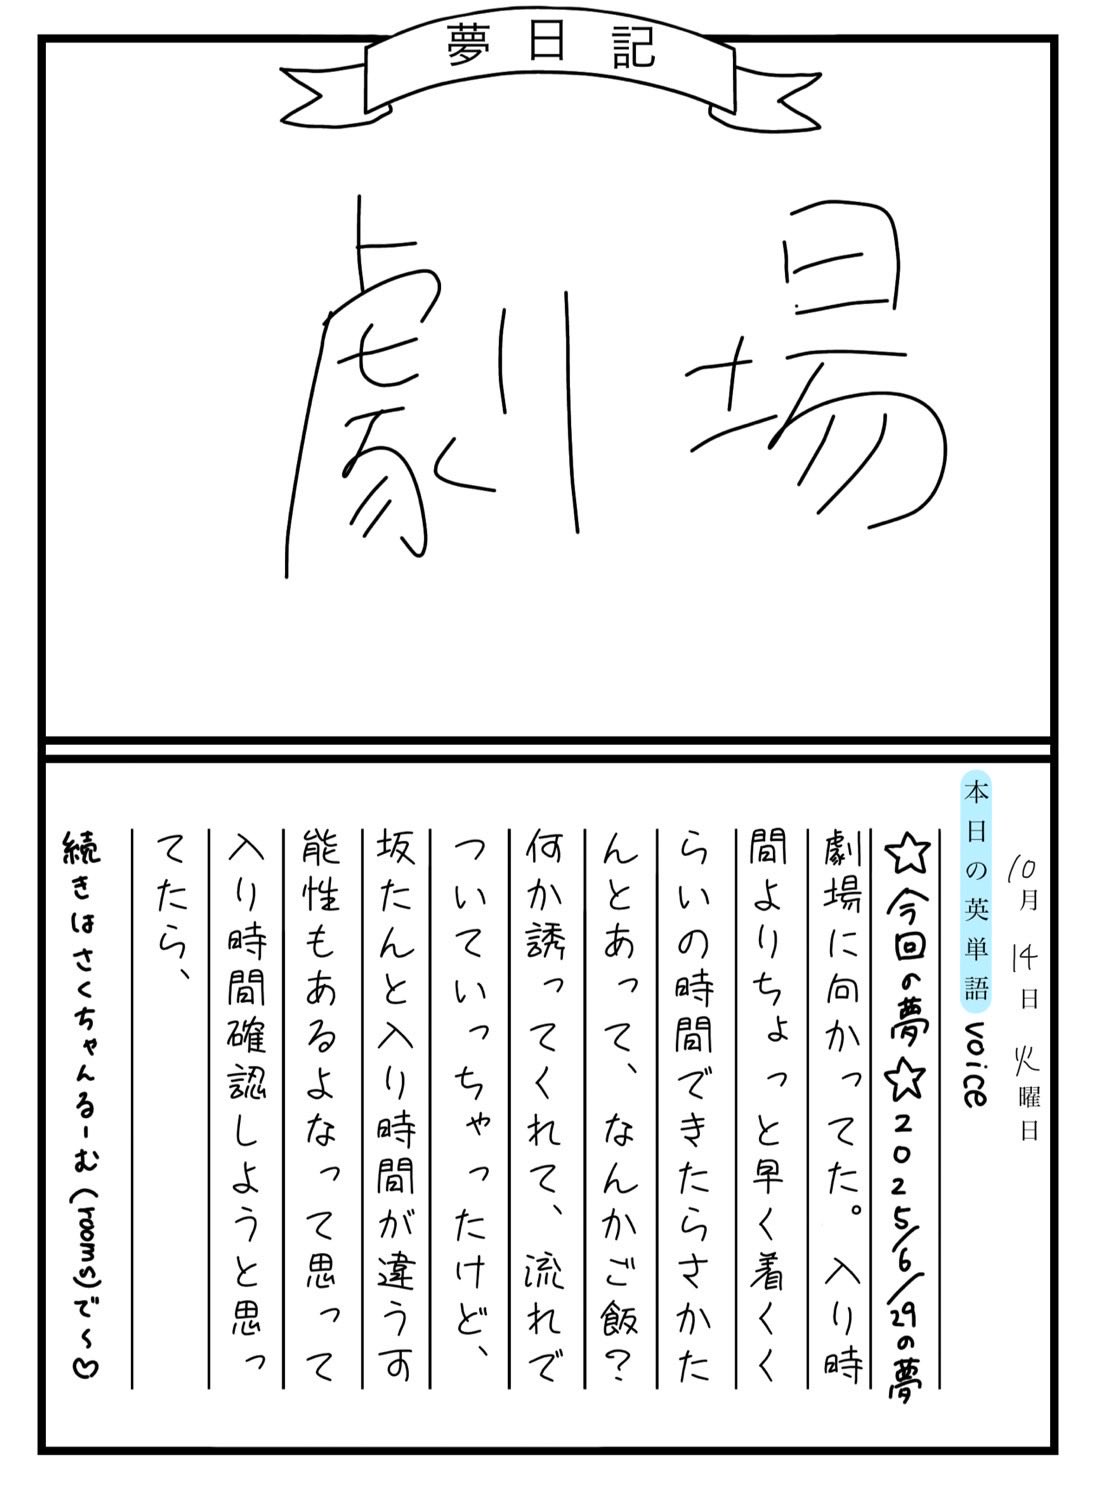 夢日記
劇場
10月14日火曜日
本日の英単語 voice
☆今回の夢☆2025/6/29の夢
劇場に向かってた。入り時
間よりちょっと早く着くく
らいの時間できたらさかた
んとあって、なんかご飯?
何か誘ってくれて、流れで
ついていっちゃったけど、
坂たんと入り時間が違うす
能性もあるよなって思って
入り時間確認しようと思っ
てたら、
続きはさくちゃんるーむ(rooms)で〜♡